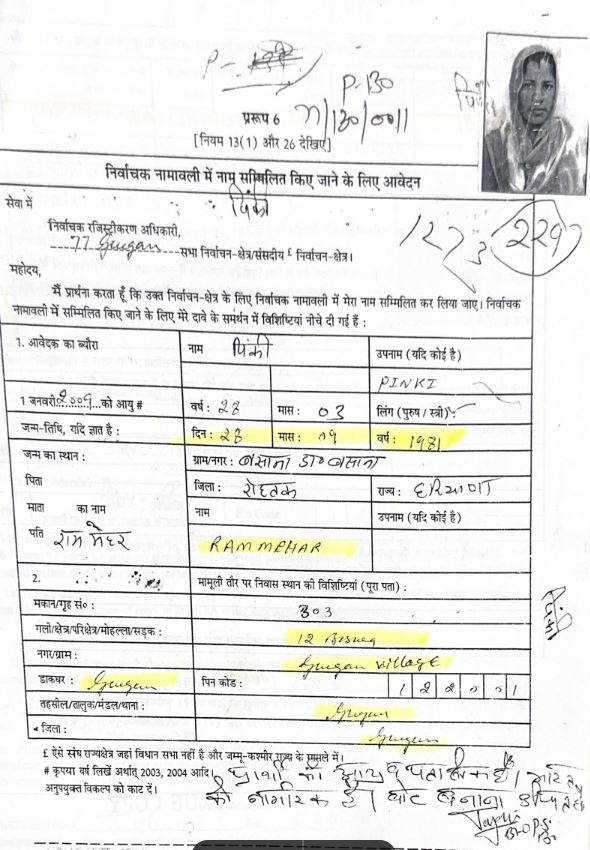 P-
P-130
प्ररूप 6
[नियम 13(1) और 26 देखिए]
निर्वाचक नामावली में नाम सम्मिलित किए जाने के लिए आवेदन
पिंकी
सेवा में
निर्वाचक रजिस्ट्रीकरण अधिकारी,
77 Gurgaon सभा निर्वाचन-क्षेत्र/संसदीय £ निर्वाचन-क्षेत्र।
महोदय,
मैं प्रार्थना करता हूँ कि उक्त निर्वाचन-क्षेत्र के लिए निर्वाचक नामावली में मेरा नाम सम्मिलित कर लिया जाए। निर्वाचक
नामावली में सम्मिलित किए जाने के लिए मेरे दावे के समर्थन में विशिष्टियां नीचे दी गई हैं :
1. आवेदक का ब्यौरा नाम पिंकी उपनाम (यदि कोई है)
PINKI
1 जनवरी 2009 को आयु # वर्ष : 28 मास : 03 लिंग (पुरुष / स्त्री) :
जन्म-तिथि, यदि ज्ञात है : दिन : 28 मास : 09 वर्ष : 1981
जन्म का स्थान : ग्राम/नगर :
जिला : रोहतक राज्य : हरियाणा
पिता
माता का नाम नाम उपनाम (यदि कोई है)
पति राम मेहर RAM MEHAR
2. मामूली तौर पर निवास स्थान की विशिष्टियां (पूरा पता) :
मकान/गृह सं० : 303
गली/क्षेत्र/परिक्षेत्र/मोहल्ला/सड़क : 12
नगर/ग्राम : Gurgaon Village
डाकघर : Gurgaon पिन कोड : 122001
तहसील/तालुक/मंडल/थाना : Gurgaon
* जिला : Gurgaon
पिंकी
£ ऐसे संघ राज्यक्षेत्र जहां विधान सभा नहीं है और जम्मू-कश्मीर राज्य के मामले में।
# कृपया वर्ष लिखें अर्थात् 2003, 2004 आदि।
अनुपयुक्त विकल्प को काट दें।
प्रार्थी की आयु व पता ठीक है।
का नागरिक है। वोट बनाना उचित है